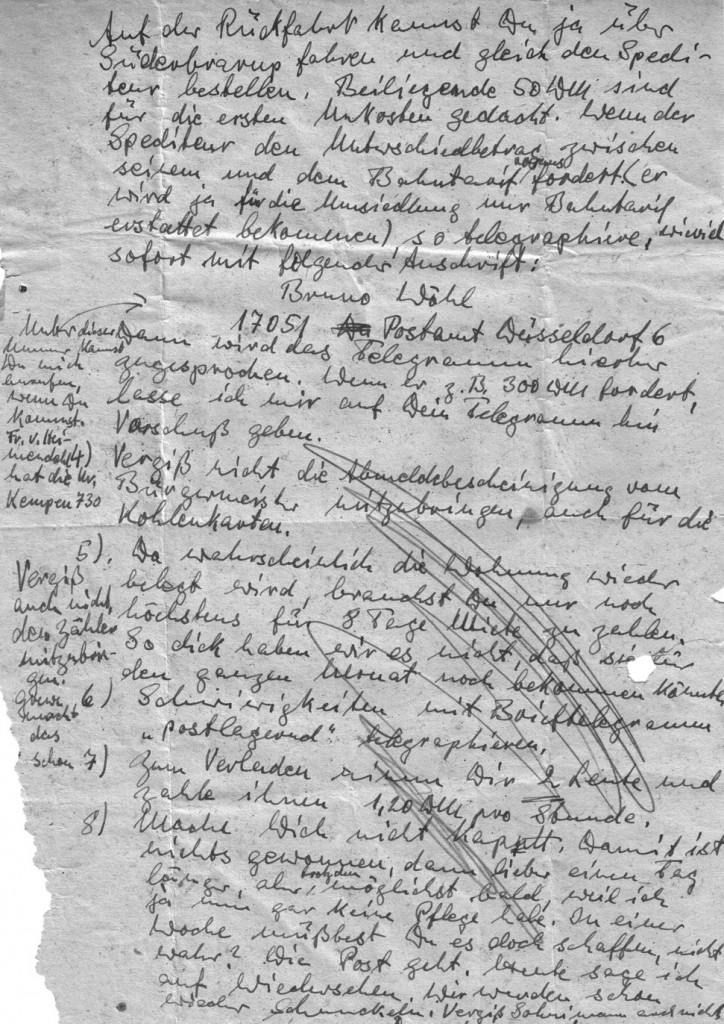 Auf der Rückfahrt kannst Du ja über
Süderbrarup fahren und gleich den Spedi-
teur bestellen. Beiliegende 50 DM sind
für die ersten Unkosten gedacht. Wenn der
Spediteur den Unterschiedbetrag zwischen
seinem und dem Bahntarif fordert (er
wird ja für die Umsiedlung nur Bahntarif
erstattet bekommen), so telegraphiere, wieviel
sofort mit folgender Anschrift:
Bruno Wöhl
17051 Postamt Düsseldorf 6
Dann wird das Telegramm hierher
zugesprochen. Wenn er z.B. 300 DM fordert,
lasse ich mir auf Dein Telegramm hin
Vorschuß geben.
Unter dieser
Nummer kannst
Du mich
anrufen,
wenn Du
kommst.
Fr. v.
hat die Nr.
Kempen 730
4) Vergiß nicht die Abmeldebescheinigung vom
Bürgermeister mitzubringen, auch für die
Kohlenkarten.
5). Da wahrscheinlich die Wohnung wieder
belegt wird, brauchst Du nur noch
höchstens für 8 Tage Miete zu zahlen.
So dick haben wir es nicht, daß sie für
den ganzen Monat noch bekommen könnte
Vergiß
auch nicht,
den Zähler
mitzubrin-
gen.
macht
das
schon
6) Schwierigkeiten mit Brieftelegramm
„postlagernd" telegraphieren.
7) Zum Verladen nimm Dir 2 Leute und
zahle ihnen 1,20 DM pro Stunde.
8) Mache Dich nicht kaputt. Damit ist
nichts gewonnen, dann lieber einen Tag
länger, aber trotzdem möglichst bald, weil ich
ja nun gar keine Pflege habe. In einer
Woche müßtest Du es doch schaffen, nicht
wahr? Die Post geht. Heute sage ich
auf Wiedersehen. Wir wurden schon
wieder Vergiß auch nicht